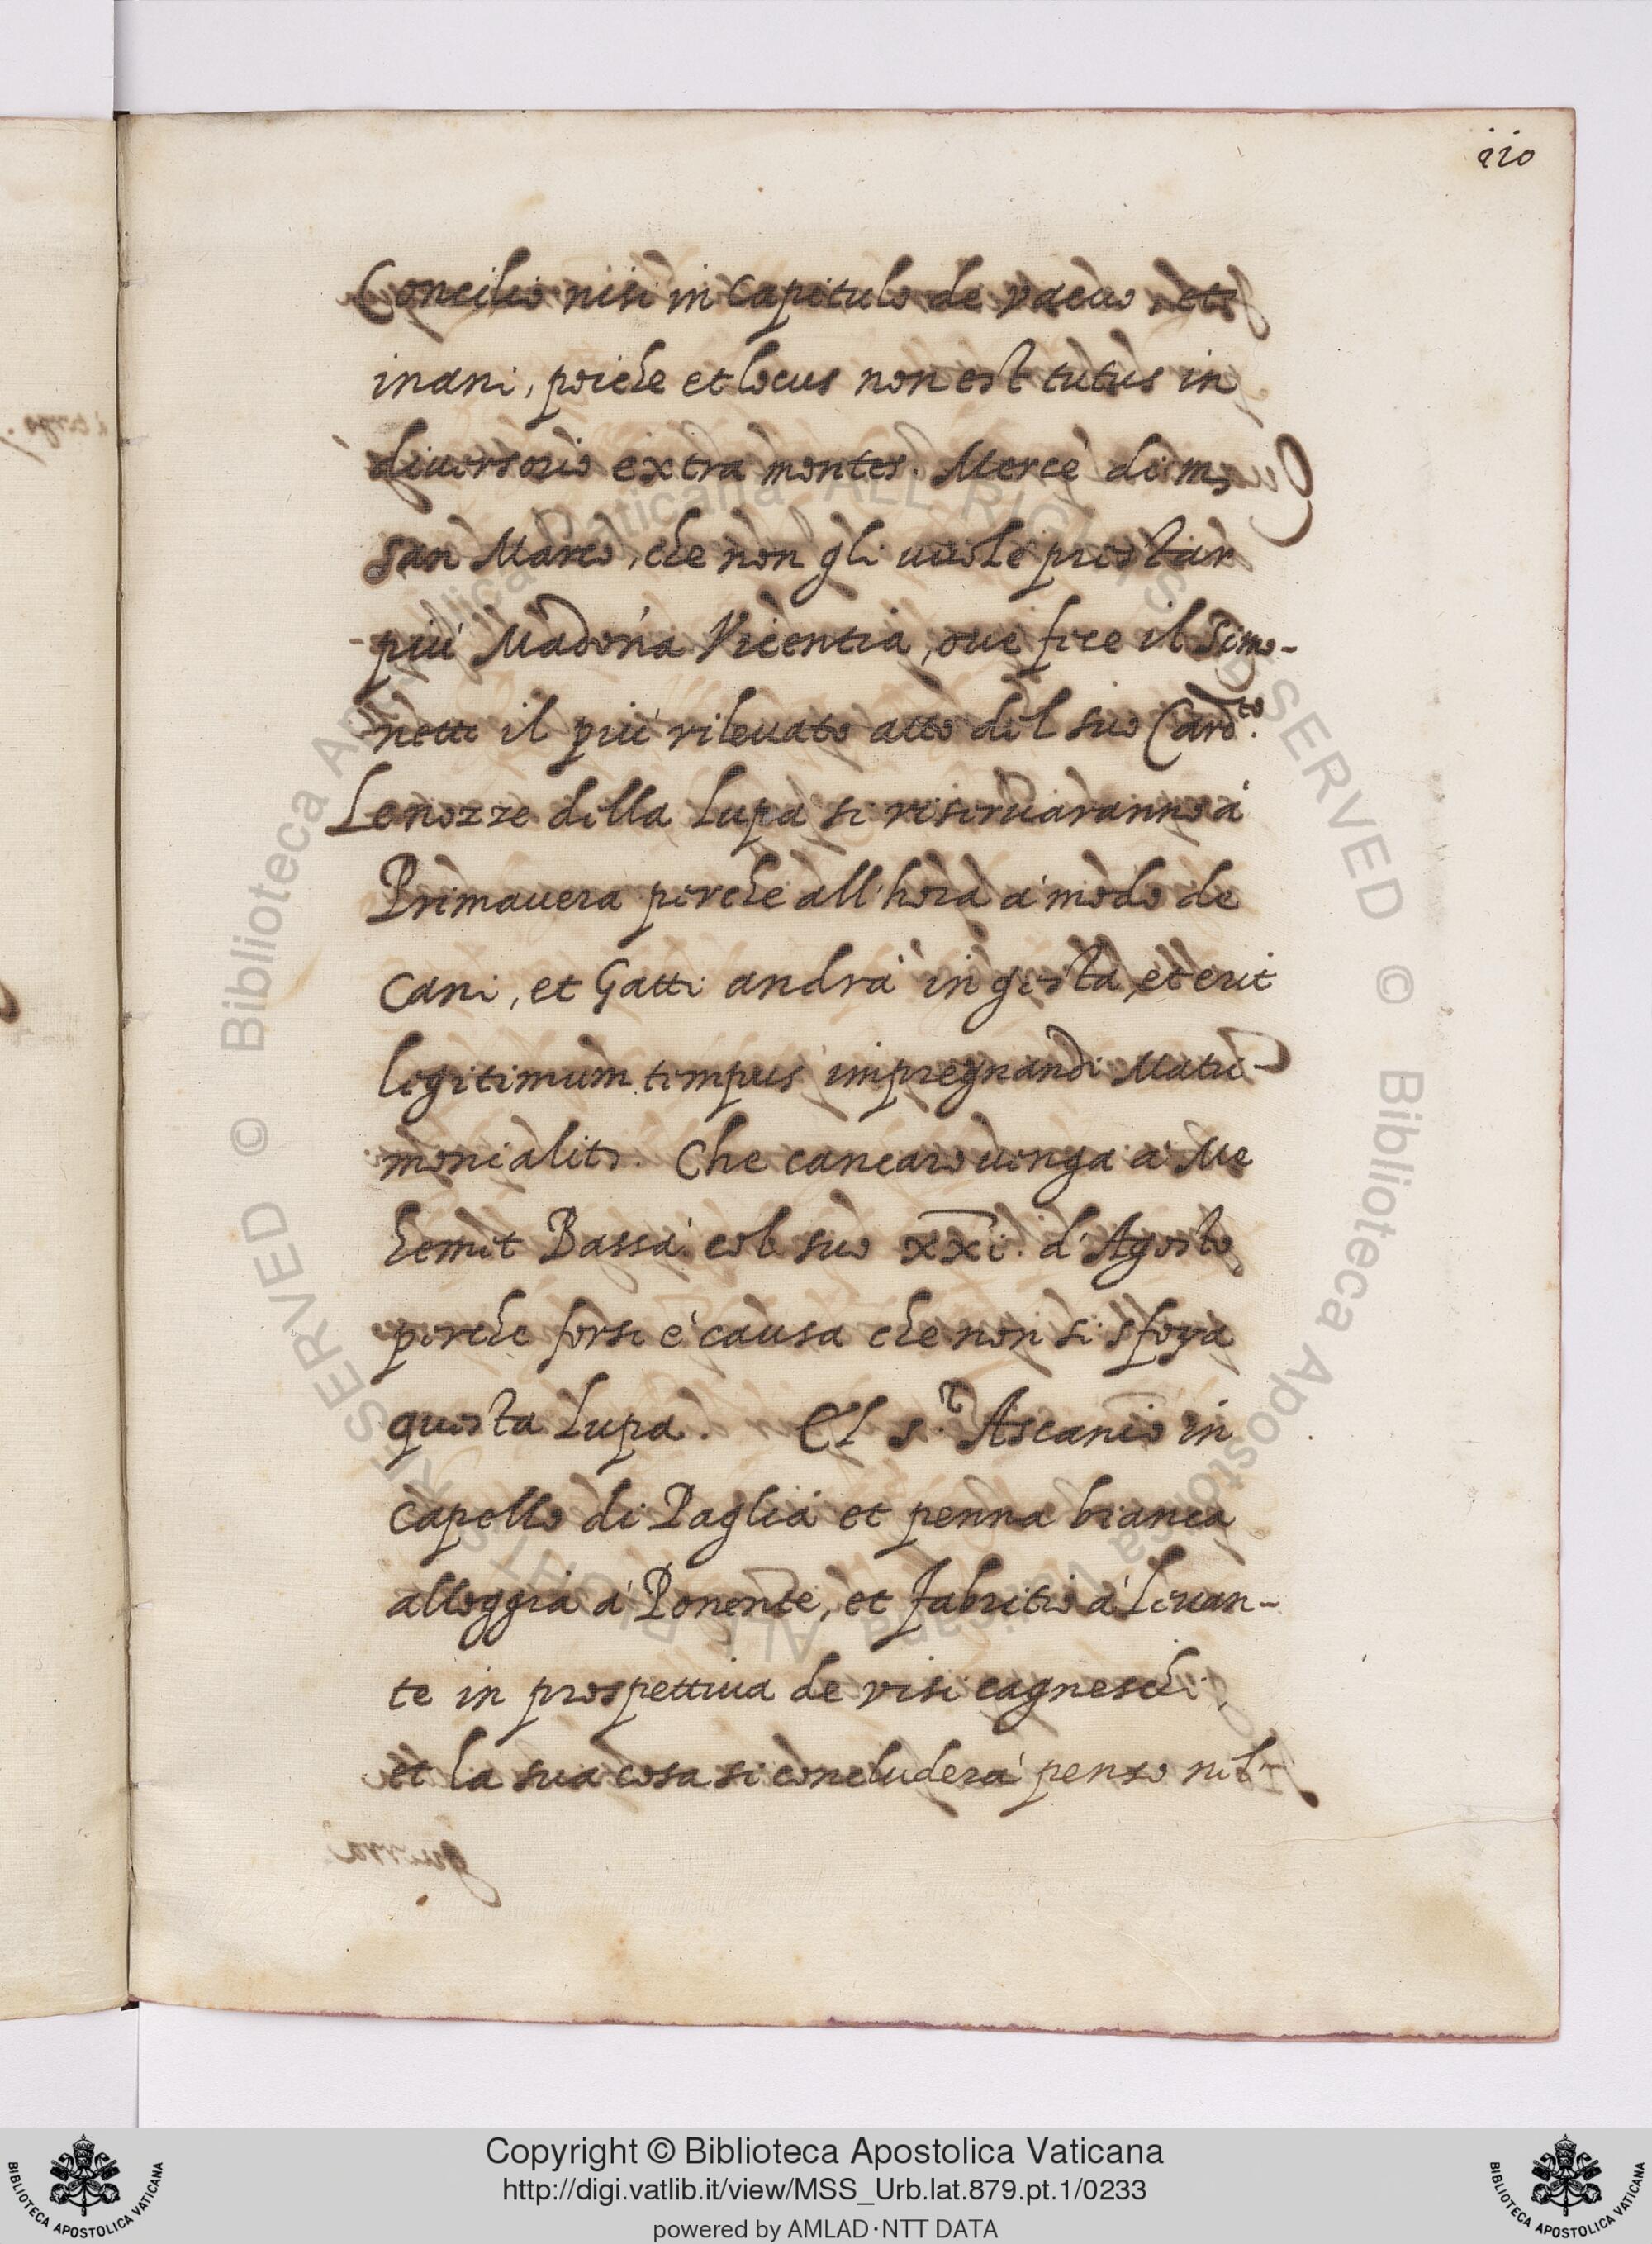 110
Concilio nisi in Capitulo de vacuo et
inani, poiche et locus non est tutus in
diuersorio extra montes. Mercè di m,
San Marco, che non gli uuole prestar
più Madona Vicentia, oue fece il Simo-
netti il più rileuato atto del suo Cardto.
Le nozze della Lupa si riseruaranno à
Primauera perche all'hora à modo de
Cani, et Gatti andrà in gesta, et erit
legitimum tempus impregnandi Matri-
monialitr. Che cancaro uenga à Me
hemet Bassà col suo xxi. d'Agosto
perche forsi è causa che non si sfoga
questa Lupa. El sr. Ascanio in
Capello di Paglia et penna bianca
alloggia à Ponente, et Fabritio à Leuan-
te in prospettiua de visi cagneschi,
et la sua cosa si concluderà penso nel-
Copyright © Biblioteca Apostolica Vaticana
http://digi.vatlib.it/view/MSS_Urb.lat.879.pt.1/0233
powered by AMLAD·NTT DATA